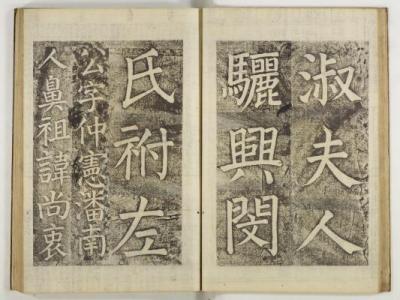 淑夫人
驪興閔
氏祔左
公字仲憲潘南
人鼻祖諱尚衷